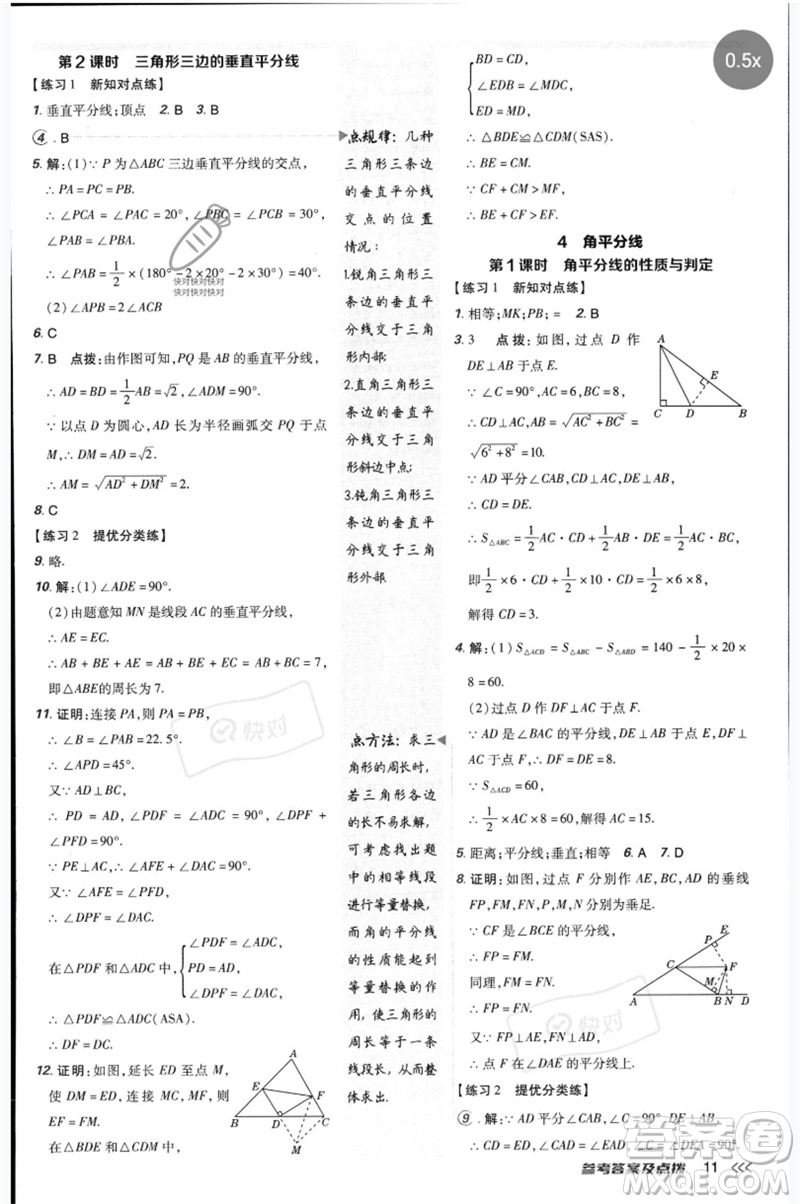 第2课时 三角形三边的垂直平分线
【练习1 新知对点练】
1. 垂直平分线;顶点 2. B 3. B
④. B
5. 解:(1)∵ P 为△ABC 三边垂直平分线的交点,
∴ PA = PC = PB,
∴ ∠PCA = ∠PAC = 20°,∠PBC = ∠PCB = 30°,
∠PAB = ∠PBA.
∴ ∠PAB = 1/2 × (180° - 2 × 20° - 2 × 30°) = 40°.
(2)∠APB = 2∠ACB
6. C
7. B 点拨:由作图可知,PQ 是 AB 的垂直平分线,
∴ AD = BD = 1/2 AB = √2,∠ADM = 90°.
∵ 以点 D 为圆心,AD 长为半径画弧交 PQ 于点
M,∴ DM = AD = √2.
∴ AM = √(AD² + DM²) = 2.
8. C
【练习2 提优分类练】
9. 略.
10. 解:(1)∠ADE = 90°.
(2)由题意知 MN 是线段 AC 的垂直平分线,
∴ AE = EC.
∴ AB + BE + AE = AB + BE + EC = AB + BC = 7,
即△ABE的周长为 7.
11. 证明:连接 PA,则 PA = PB,
∴ ∠B = ∠PAB = 22.5°.
∴ ∠APD = 45°.
又∵ AD⊥BC,
∴ PD = AD,∠PDF = ∠ADC = 90°,∠DPF +
∠PFD = 90°.
又∵ PE⊥AC,∴ ∠AFE + ∠DAC = 90°.
又∵ ∠AFE = ∠PFD,
∴ ∠DPF = ∠DAC.
在△PDF 和△ADC 中,{∠PDF = ∠ADC,
PD = AD,
∠DPF = ∠DAC,
∴ △PDF≌△ADC(ASA).
∴ DF = DC.
12. 证明:如图,延长 ED 至点 M,
使 DM = ED,连接 CM,FM,则
EF = FM.
在△BDE 和△CDM 中,
A
E
F
B
D
C
M
点规律:几种
三角形三条边
的垂直平分线
交点的位置
情况:
1.锐角三角形三
条边的垂直平
分线交于三角
形内部;
2.直角三角形三
条边的垂直平
分线交于三角
形斜边中点;
3.钝角三角形三
条边的垂直平
分线交于三角
形外部
点方法:求三
角形的周长时,
若三角形各边
的长不易求解,
可考虑找出题
中的相等线段
进行等量替换,
而角的平分线
的性质能起到
等量替换的作
用,使三角形的
周长等于一条
线段长,从而整
体求出.
{BD = CD,
∠EDB = ∠MDC,
ED = MD,
∴ △BDE≌△CDM(SAS).
∴ BE = CM.
∵ CF + CM > FM,
∴ BE + CF > EF.
4 角平分线
第1课时 角平分线的性质与判定
【练习1 新知对点练】
1. 相等;MK;PB; = 2. B
3. 3 点拨:如图,过点 D 作
DE⊥AB 于点 E.
∵ ∠C = 90°,AC = 6,BC = 8,
∴ CD⊥AC,AB = √(AC² + BC²) =
√(6² + 8²) = 10.
∵ AD 平分∠CAB,CD⊥AC,DE⊥AB,
∴ CD = DE.
∴ S△ABC = 1/2 AC·CD + 1/2 AB·DE = 1/2 AC·BC,
即 1/2 × 6·CD + 1/2 × 10·CD = 1/2 × 6 × 8,
解得 CD = 3.
A
E
C
D
B
4. 解:(1)S△ACD = S△ABC - S△ABD = 140 - 1/2 × 20 ×
8 = 60.
(2)过点 D 作 DF⊥AC 于点 F.
∵ AD 是∠BAC 的平分线,DE⊥AB,DF⊥AC,
∴ DF = DE = 8.
∵ S△ACD = 60,
∴ 1/2 × AC × 8 = 60,解得 AC = 15.
5. 距离;平分线;垂直;相等 6. A 7. D
8. 证明:如图,过点 F 分别作 AE,BC,AD 的垂线
FP,FM,FN,P,M,N 分别为垂足.
∵ CF 是∠BCE 的平分线,
∴ FP = FM.
同理,FM = FN.
∴ FP = FN.
又∵ FP⊥AE,FN⊥AD,
∴ 点 F 在∠DAE 的平分线上.
E
P
C
F
M
A
B
N
D
【练习2 提优分类练】
⑨. 解:∵ AD 平分∠CAB,∠C = 90°,DE⊥AB,
∴ CD = ED,∠CAD = ∠EAD,∠AED = 90°.
参考答案及点拨 11
0.5x
快对快对快对
快对快对快对
快对
答案圈